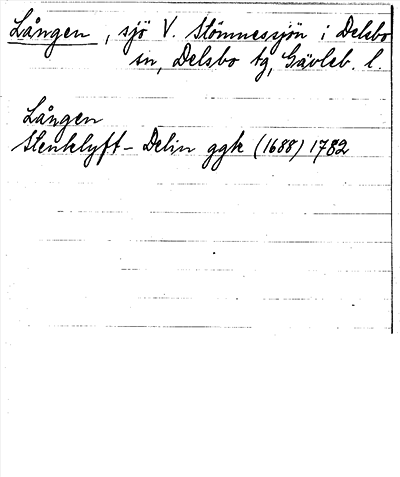 Lången, sjö V. Stömnessjön i Delsbo
sn, Delsbo tg, Gävleb. l.
Lången
Stenklyft - Delin ggk (1688) 1782